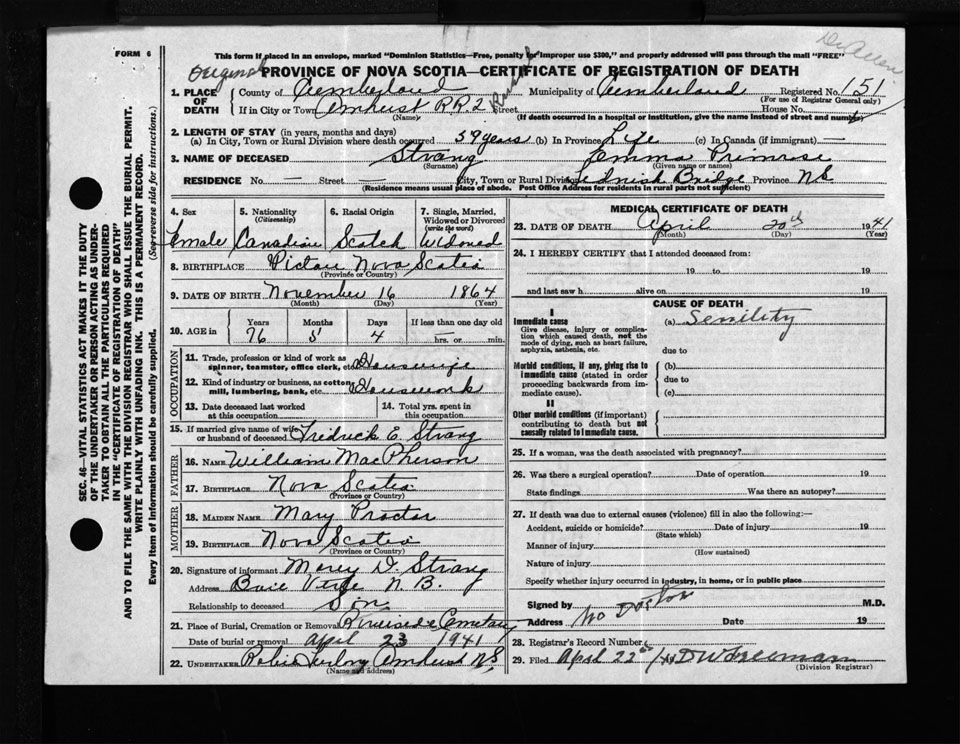 FORM 6
This form if placed in an envelope, marked "Dominion Statistics—Free, penalty for improper use $300," and properly addressed will pass through the mail "FREE"
Dr Allen
PROVINCE OF NOVA SCOTIA—CERTIFICATE OF REGISTRATION OF DEATH
1. PLACE OF DEATH
County of Cumberland Municipality of Cumberland Registered No. 151
(For use of Registrar General only)
If in City or Town Amherst RR.2 Street House No.
(Name) (If death occurred in a hospital or institution, give the name instead of street and number)
2. LENGTH OF STAY (in years, months and days)
(a) In City, Town or Rural Division where death occurred 59 years (b) In Province Life (c) In Canada (if immigrant) —
3. NAME OF DECEASED Strang Emma Primrose
(Surname) (Given name or names)
RESIDENCE No. — Street — City, Town or Rural Division Tidnish Bridge Province N.S.
(Residence means usual place of abode. Post Office Address for residents in rural parts not sufficient)
4. Sex
Female
5. Nationality
(Citizenship)
Canadian
6. Racial Origin
Scotch
7. Single, Married, Widowed or Divorced
(write the word)
Widowed
8. BIRTHPLACE Pictou Nova Scotia
(Province or Country)
9. DATE OF BIRTH November 16 1864
(Month) (Day) (Year)
10. AGE in
Years Months Days If less than one day old
76 5 4 — hrs. or — min.
OCCUPATION
11. Trade, profession or kind of work as spinner, teamster, office clerk, etc. Housewife
12. Kind of industry or business, as cotton mill, lumbering, bank, etc. Housework
13. Date deceased last worked at this occupation
14. Total yrs. spent in this occupation
15. If married give name of wife or husband of deceased Fredrick E. Strang
FATHER
16. NAME William MacPherson
17. BIRTHPLACE Nova Scotia
(Province or Country)
MOTHER
18. MAIDEN NAME Mary Proctor
19. BIRTHPLACE Nova Scotia
(Province or Country)
20. Signature of informant D. Strang
Address Baie Verte N. B.
Relationship to deceased Son
21. Place of Burial, Cremation or Removal Riverside Cemetery
Date of burial or removal April 23 1941
22. UNDERTAKER Amherst N.S.
(Name and address)
MEDICAL CERTIFICATE OF DEATH
23. DATE OF DEATH April 20th 1941
(Month) (Day) (Year)
24. I HEREBY CERTIFY that I attended deceased from:
19 to 19
and last saw h alive on 19
CAUSE OF DEATH
I
Immediate cause
Give disease, injury or complication which caused death, not the mode of dying, such as heart failure, asphyxia, asthenia, etc.
(a) Senility
due to
Morbid conditions, if any, giving rise to immediate cause (stated in order proceeding backwards from immediate cause)
(b)
due to
(c)
II
Other morbid conditions (if important) contributing to death but not causally related to immediate cause.
25. If a woman, was the death associated with pregnancy?
26. Was there a surgical operation? Date of operation 19
State findings Was there an autopsy?
27. If death was due to external causes (violence) fill in also the following:—
Accident, suicide or homicide? Date of injury 19
(State which)
Manner of injury
(How sustained)
Nature of injury
Specify whether injury occurred in industry, in home, or in public place
Signed by No Doctor M.D.
Address Date 19
28. Registrar's Record Number
29. Filed April 22nd/41 D W Freeman
(Division Registrar)
SEC. 46—VITAL STATISTICS ACT MAKES IT THE DUTY
OF THE UNDERTAKER OR PERSON ACTING AS UNDER-
TAKER TO OBTAIN ALL THE PARTICULARS REQUIRED
IN THE "CERTIFICATE OF REGISTRATION OF DEATH"
AND TO FILE THE SAME WITH THE DIVISION REGISTRAR WHO SHALL ISSUE THE BURIAL PERMIT.
WRITE PLAINLY WITH UNFADING INK. THIS IS A PERMANENT RECORD.
Every item of information should be carefully supplied. (See reverse side for instructions.)